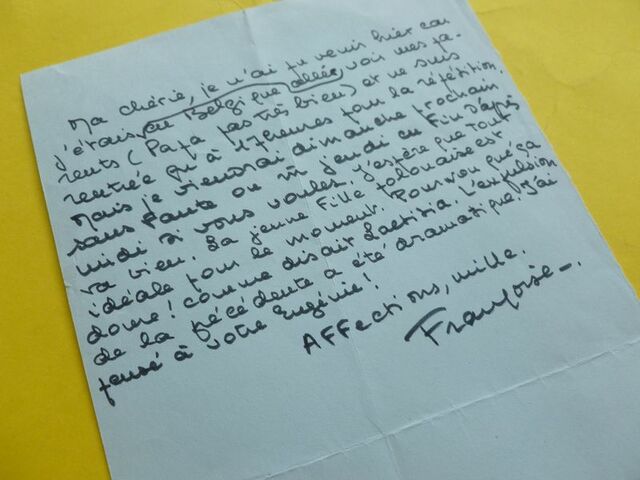 Ma chérie, je n'ai pu venir hier car
j'étais en Belgique allée voir mes pa-
rents (Papa pas très bien) et ne suis
rentrée qu'à 17 heures pour la répétition.
Mais je viendrai dimanche prochain
sans faute ou m jeudi en fin d'après
midi si vous voulez. J'espère que tout
va bien. La jeune fille polonaise est
idéale pour le moment. Pourvou qué ça
doure! comme disait Laetitia. L'expulsion
de la précédente a été dramatique. J'ai
pensé à votre Eugénie!
Affections, mille.
Françoise